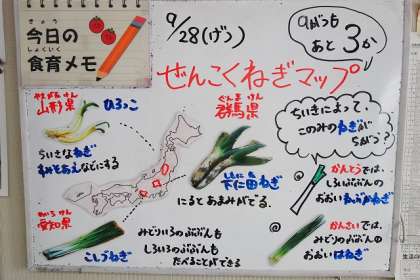 きょう
今日の
しょくいく
食育メモ
9/28(げつ)
9がつも
あと3か
ぜんこくねぎマップ
やまがたけん
山形県
ひろっこ
ちいさなねぎ
すみそあえなどにする
ぐんまけん
群馬県
しもにた
下仁田ねぎ
にるとあまみがでる。
ちいきによって、
このみのねぎが
ちがう?
あいちけん
愛知県
こしづねぎ
みどりいろのぶぶんも
しろいろのぶぶんも
たべることができる
かんとうでは、
しろいぶぶんの
おおいねぶかねぎ
かんさいでは、
みどりのぶぶんの
おおいはねぎ